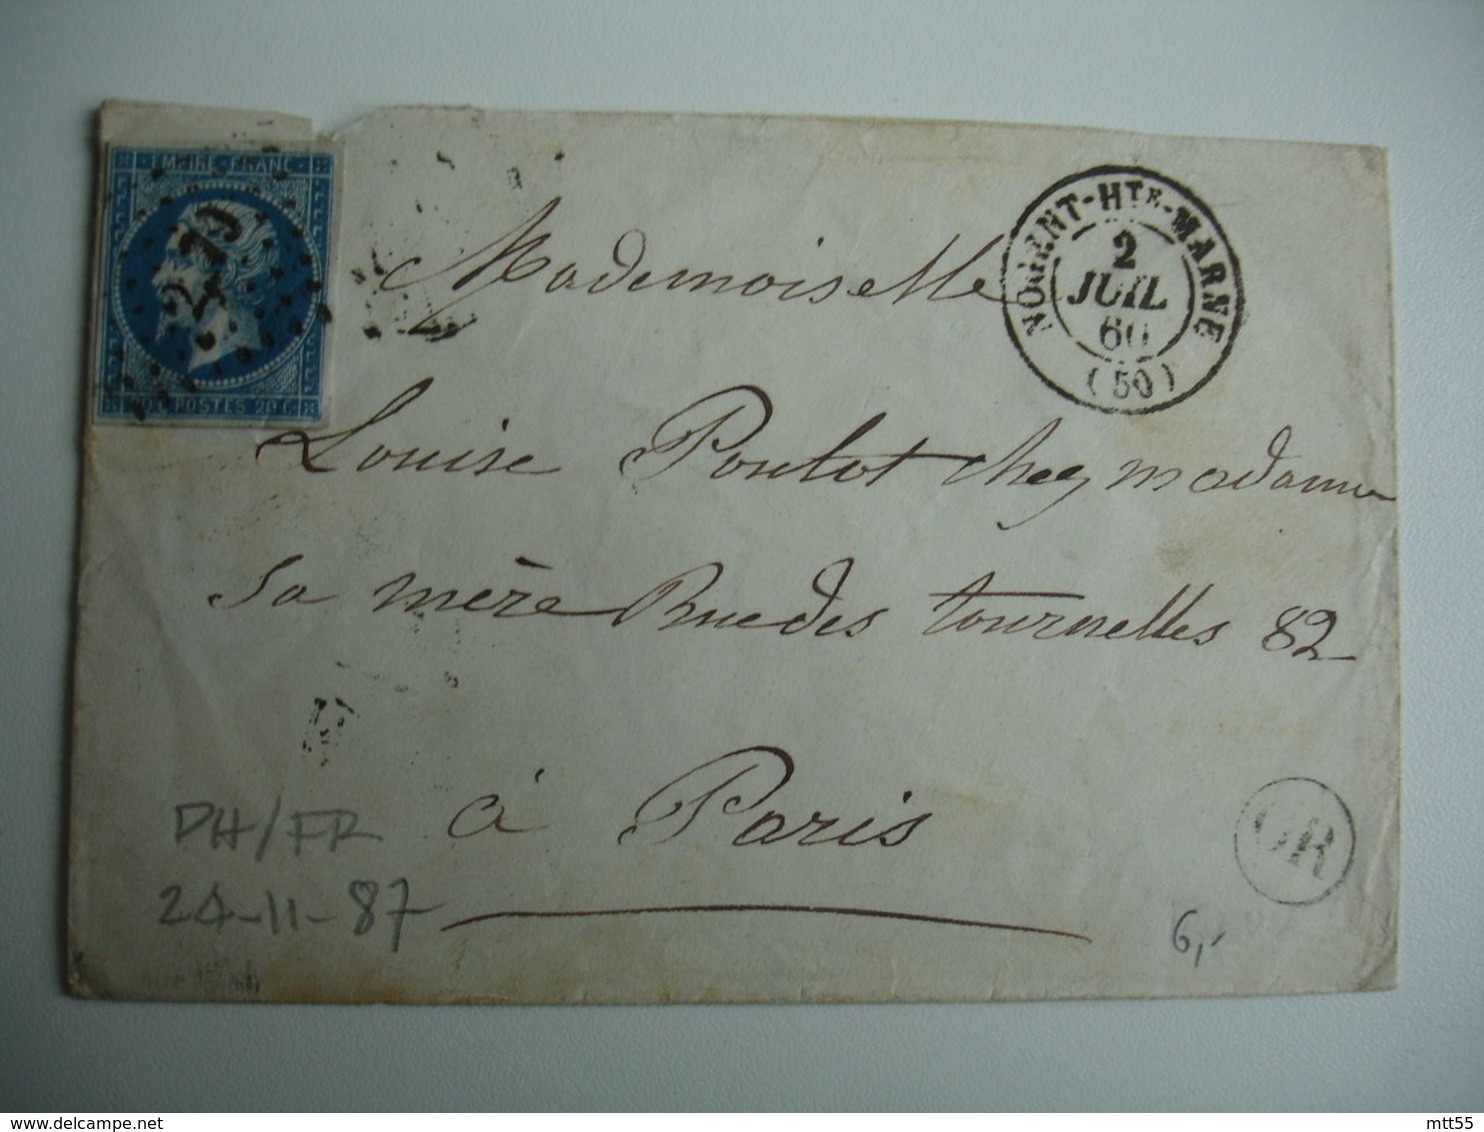 EMPIRE · FRANC ·
20 C. POSTES 20 C.
NOGENT-HTE-MARNE
2
JUIL
60
(50)
Mademoiselle
Louise Poulot chez madame
sa mère Rue des tournelles 82
à Paris
PH/FR
24-11-87
OR
6,-
delcampe.net
mtt55